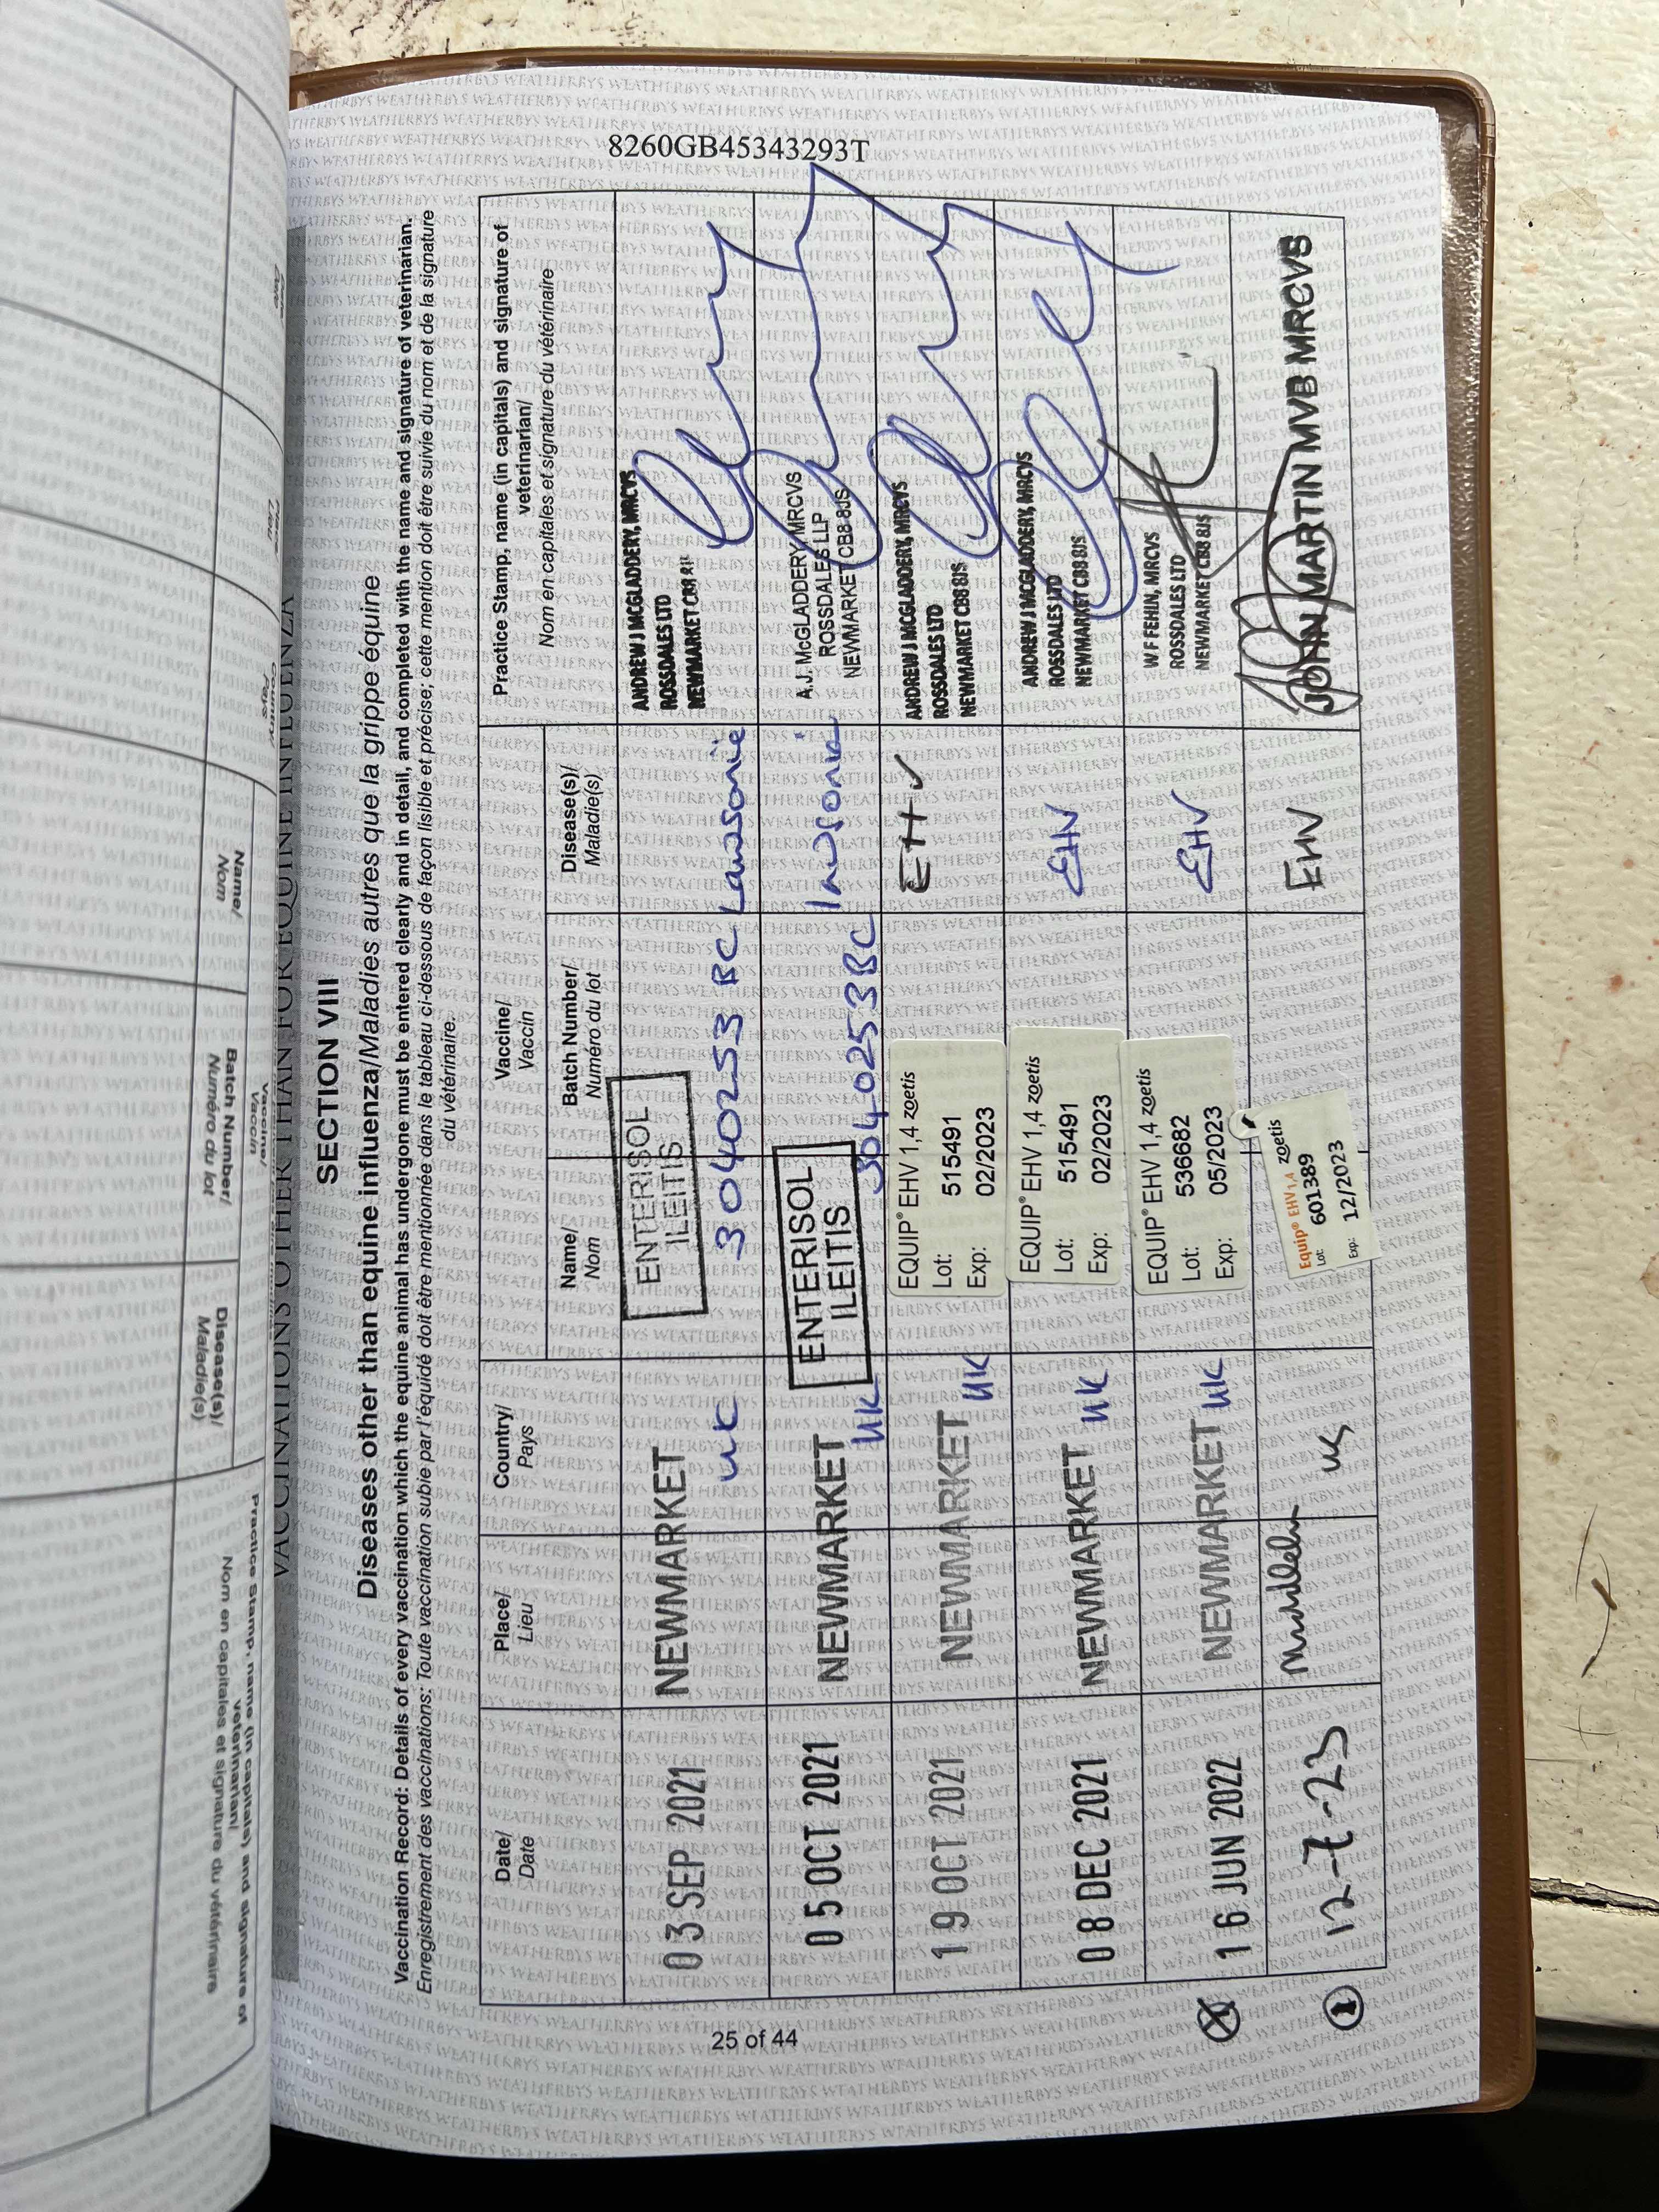 8260GB45343293T
VACCINATIONS OTHER THAN FOR EQUINE INFLUENZA
SECTION VIII
Diseases other than equine influenza/Maladies autres que la grippe équine
Vaccination Record: Details of every vaccination which the equine animal has undergone must be entered clearly and in detail, and completed with the name and signature of veterinarian.
Enregistrement des vaccinations: Toute vaccination subie par l'équidé doit être mentionnée dans le tableau ci-dessous de façon lisible et précise; cette mention doit être suivie du nom et de la signature
du vétérinaire.
Date/
Date
Place/
Lieu
Country/
Pays
Vaccine/
Vaccin
Name/
Nom
Batch Number/
Numéro du lot
Disease(s)/
Maladie(s)
Practice Stamp, name (in capitals) and signature of
veterinarian/
Nom en capitales et signature du vétérinaire
03 SEP 2021
NEWMARKET
UK
ENTERISOL
ILEITIS
3040253 BC
Lawsonia
ANDREW J MCGLADDERY, MRCVS
ROSSDALES LTD
NEWMARKET CB8 8JS
05 OCT 2021
NEWMARKET
UK
ENTERISOL
ILEITIS
3040253BC
lawsonia
A.J. McGLADDERY MRCVS
ROSSDALES LLP
NEWMARKET CB8 8JS
19 OCT 2021
NEWMARKET
UK
EQUIP® EHV 1,4 zoetis
Lot: 515491
Exp: 02/2023
EHV
ANDREW J MCGLADDERY, MRCVS
ROSSDALES LTD
NEWMARKET CB8 8JS
08 DEC 2021
NEWMARKET
UK
EQUIP® EHV 1,4 zoetis
Lot: 515491
Exp: 02/2023
EHV
ANDREW J MCGLADDERY, MRCVS
ROSSDALES LTD
NEWMARKET CB8 8JS
X
16 JUN 2022
NEWMARKET
UK
EQUIP® EHV 1,4 zoetis
Lot: 536682
Exp: 05/2023
EHV
W F FEHIN, MRCVS
ROSSDALES LTD
NEWMARKET CB8 8JS
1
12-7-23
UK
Equip® EHV 1,4 zoetis
Lot: 601389
Exp: 12/2023
EHV
JOHN MARTIN MVB MRCVS
25 of 44
Country/
Pays
Vaccine/
Vaccin
Name/
Nom
Batch Number/
Numéro du lot
Disease(s)/
Maladie(s)
Practice Stamp, name (in capitals) and signature of
veterinarian/
Nom en capitales et signature du vétérinaire